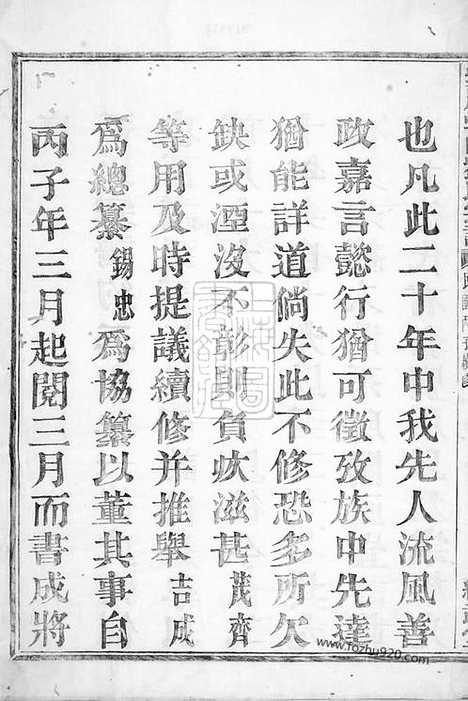 也凡此二十年中我先人流風善
政嘉言懿行猶可徵攷族中先達
猶能詳道倘失此不修恐多所欠
缺或湮沒不彰則負疚滋甚茂齊
等用及時提議續修并推舉吉成
為總纂錫忠為協纂以董其事自
丙子年三月起閱三月而書成將
www.fozhu920.com